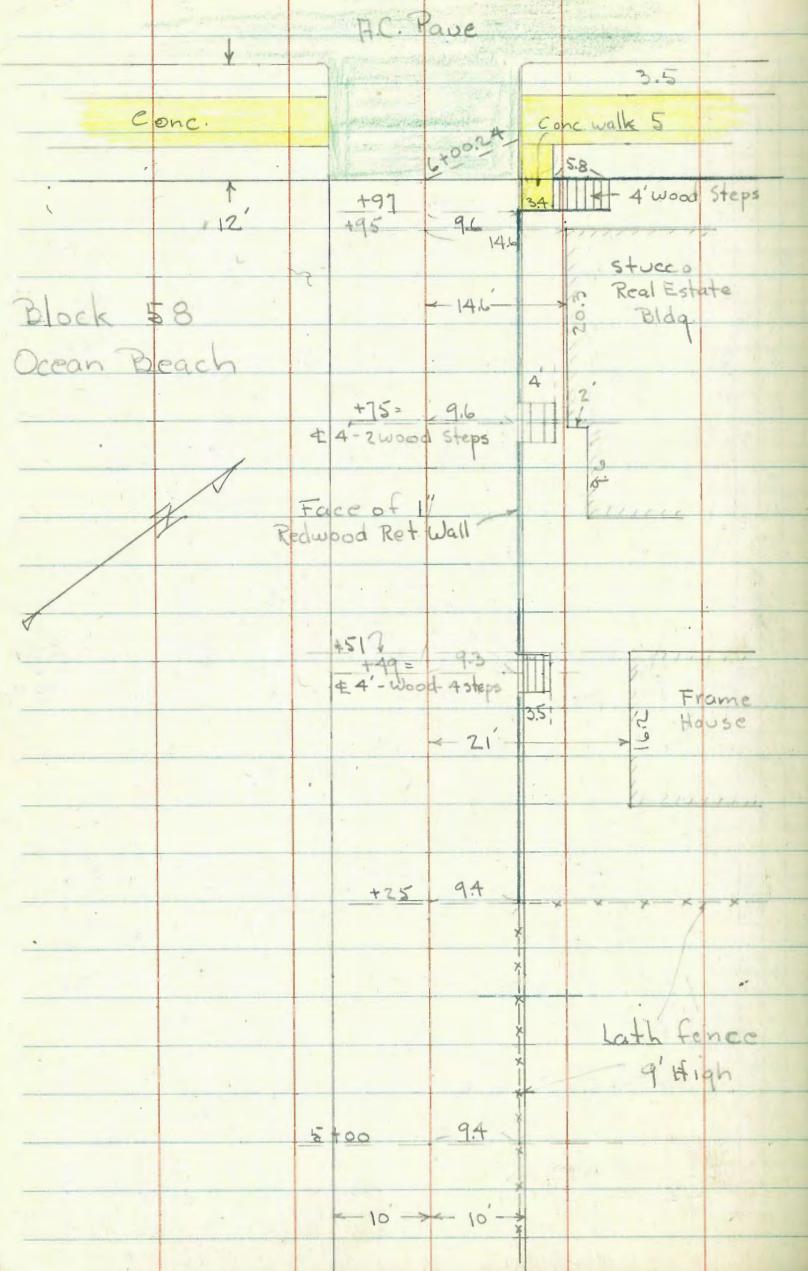 A.C. Pave
3.5
Conc.
Conc walk 5
6+00.24
5.8
4' Wood Steps
3.4
+97
+95 9.6
14.6
12'
Stucco
Real Estate
Bldg
14.6'
20.3
Block 58
Ocean Beach
4'
2'
+75= 9.6
℄ 4'-2 wood Steps
Face of 1"
Redwood Ret Wall
+51
+49= 9.3
℄ 4'-Wood-4 steps
3.5'
Frame
House
21'
16.2'
+25 9.4
Lath fence
9' High
5+00 9.4
10' 10'